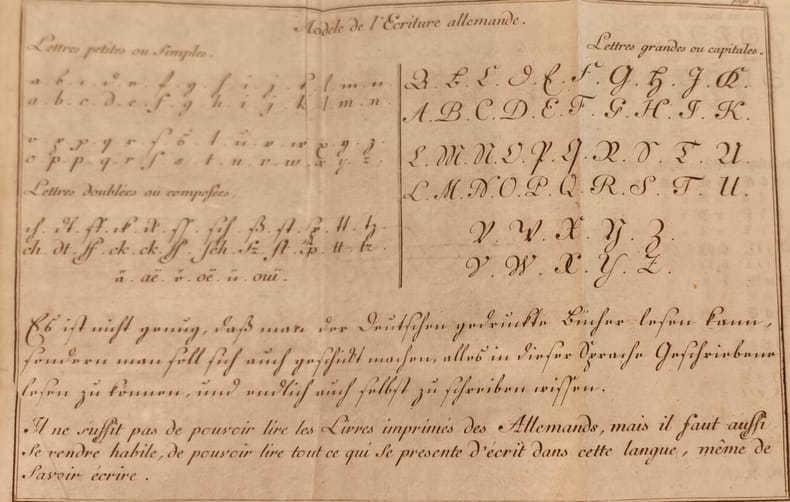 Modèle de l'Ecriture allemande.
Lettres petites ou simples.
Lettres grandes ou capitales.
a. b. c. d. e. f. g. h. i. j. k. l. m. n.
a. b. c. d. e. f. g. h. i. j. k. l. m. n.
o. p. p. q. r. ſ. s. t. u. v. w. x. y. z.
o. p. p. q. r. ſ. s. t. u. v. w. x. y. z.
Lettres doublées ou composées.
ch. dt. ff. ck. ck. ſſ. ſch. ß. ſt. tt. tz.
ch. dt. ff. ck. ck. ſſ. ſch. ſz. ſt. tt. tz.
ä. aë. ö. oë. ü. ouï.
A. B. C. D. E. F. G. H. J. K.
A. B. C. D. E. F. G. H. I. K.
L. M. N. O. P. Q. R. S. T. U.
L. M. N. O. P. Q. R. S. T. U.
V. W. X. Y. Z.
V. W. X. Y. Z.
Es ist nicht genug, daß man der Deutschen gedruckte Bücher lesen kann,
sondern man soll sich auch geschikt machen, alles in dieser Sprache Geschriebene
lesen zu können, und endlich auch selbst zu schreiben wissen.
Il ne suffit pas de pouvoir lire les Livres imprimés des Allemands, mais il faut aussi
se rendre habile, de pouvoir lire tout ce qui se presente d'écrit dans cette langue, même de
savoir écrire.